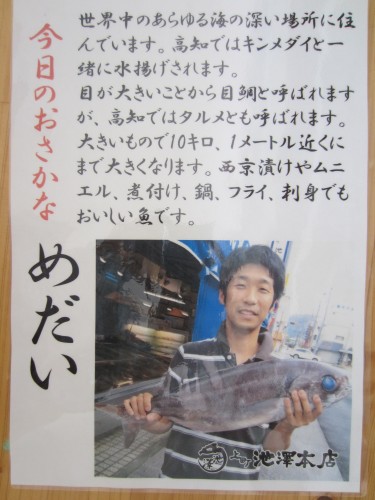 今日のおさかな
めだい
世界中のあらゆる海の深い場所に住
んでいます。高知ではキンメダイと一
緒に水揚げされます。
目が大きいことから目鯛と呼ばれます
が、高知ではタルメとも呼ばれます。
大きいもので10キロ、1メートル近くに
まで大きくなります。西京漬けやムニ
エル、煮付け、鍋、フライ、刺身でも
おいしい魚です。
上町池澤本店